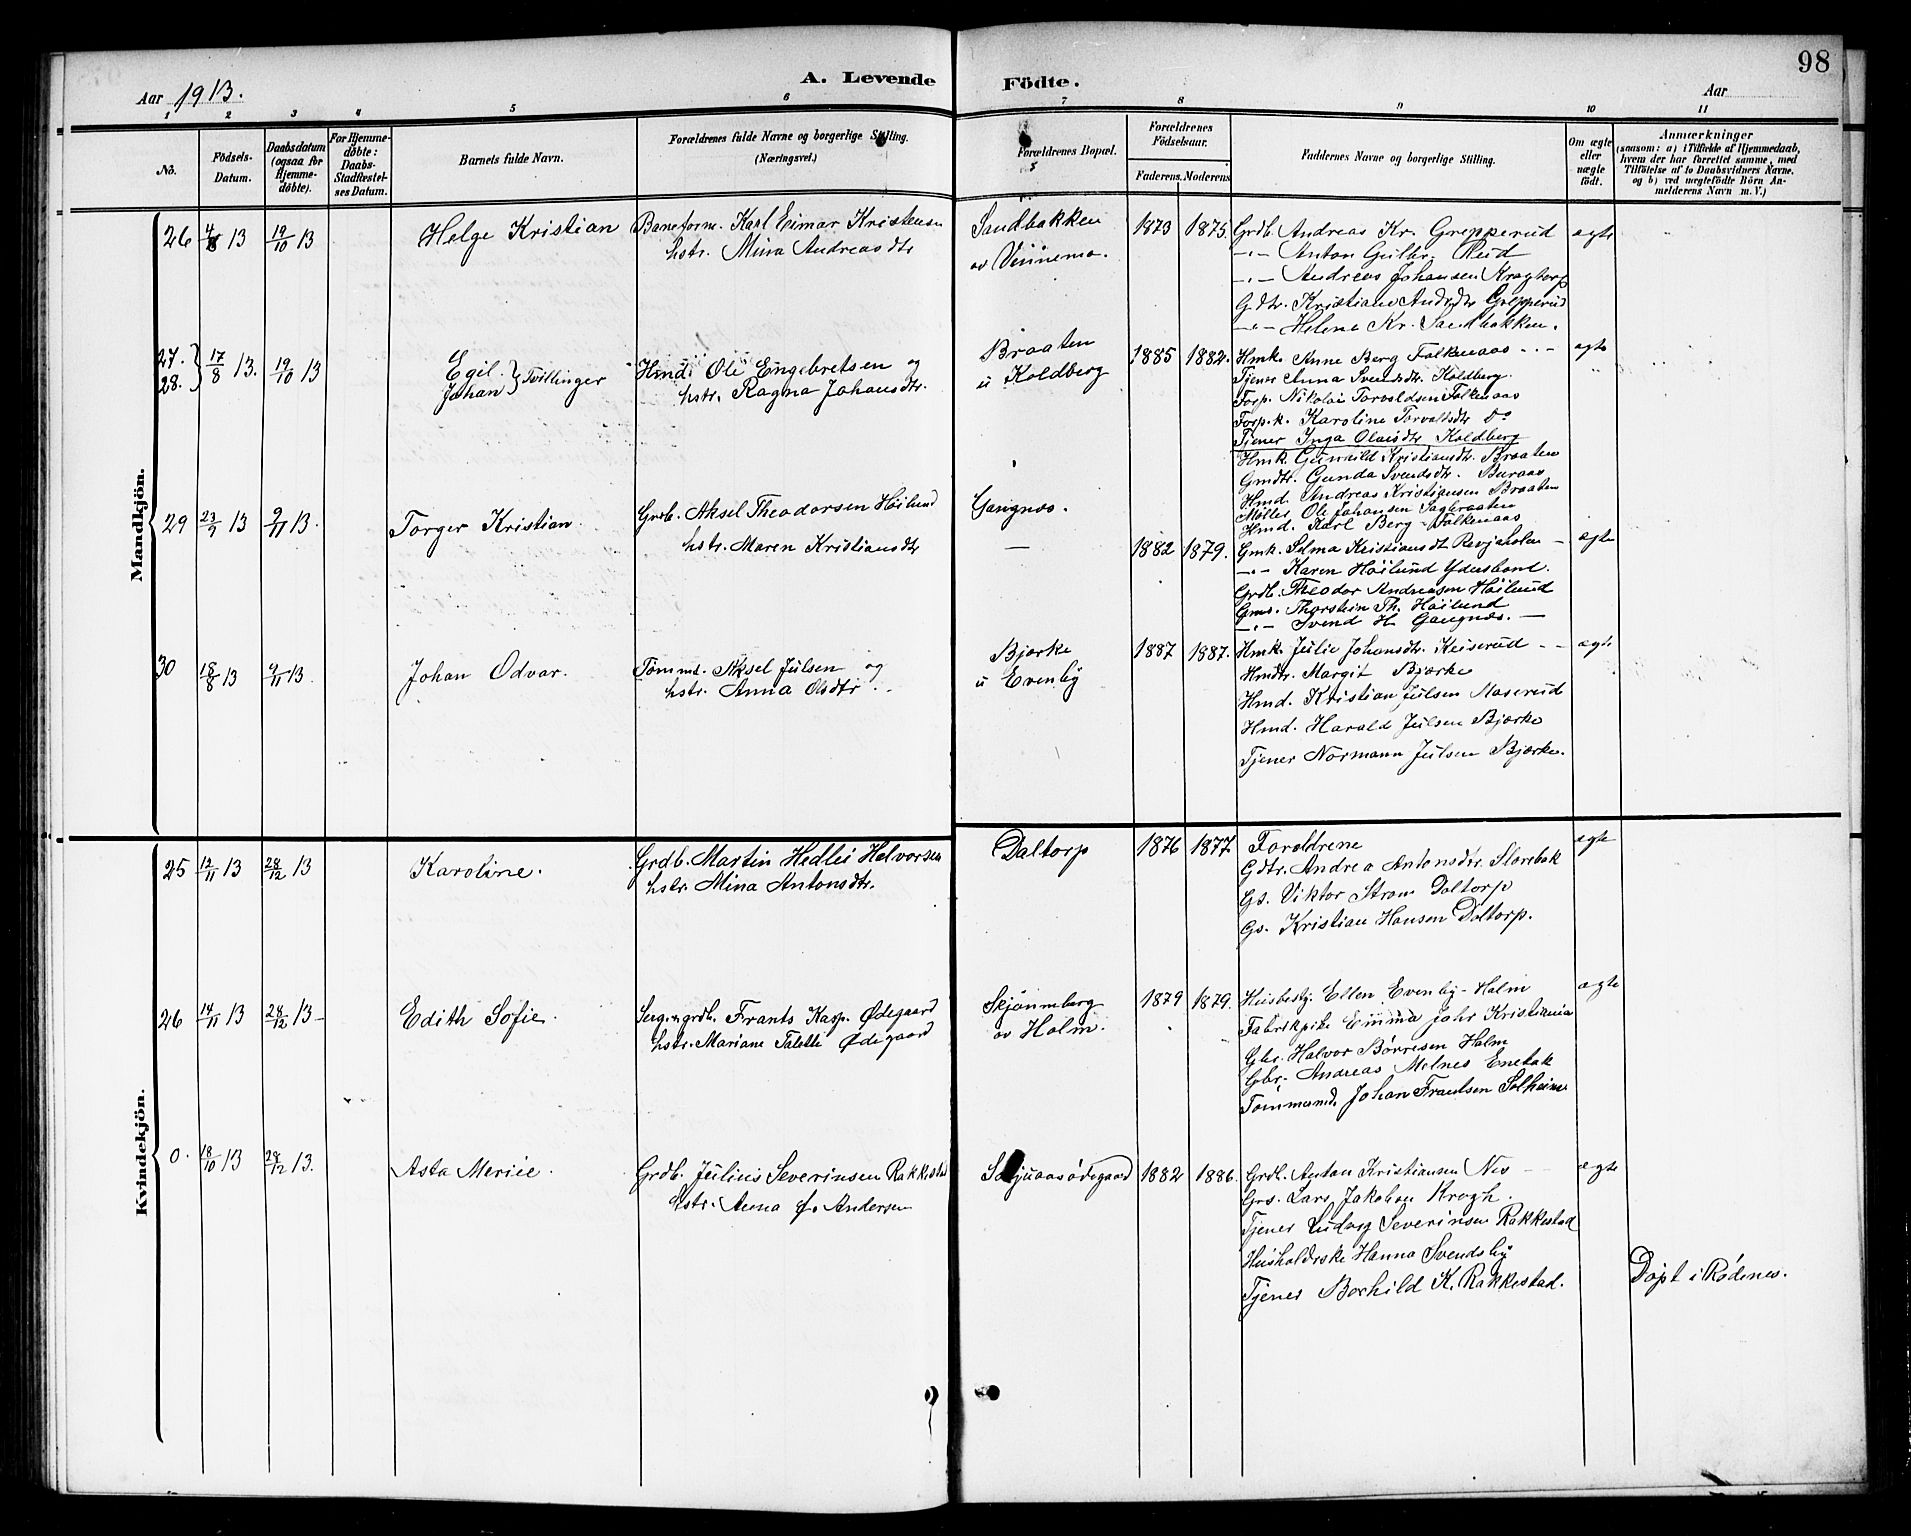 98
A. Levende Födte.
Aar 1913.
Aar
1 2 3 4 5 6 7 8 9 10 11
No.
Födsels-Datum.
Daabsdatum (ogsaa for Hjemme-döbte).
For Hjemme-döbte: Daabs-Stadfæstel-ses Datum.
Barnets fulde Navn.
Forældrenes fulde Navne og borgerlige Stilling. (Næringsvei.)
Forældrenes Bopæl.
Forældrenes Födselsaar.
Faderens. Moderens
Faddernes Navne og borgerlige Stilling.
Om ægte eller uægte födt.
Anmærkninger
(saasom: a) i Tilfælde af Hjemmedaab, hvem der har forrettet samme, med Tilföielse af to Daabsvidners Navne, og b) ved uægtefödte Börn An-melderens Navn m. V.)
Mandkjön.
26 4/8 13 19/10 13 Helge Kristian
Baneform. Karl Eimar Kristensen
hstr. Mina Andreasdtr
Sandbakken
av Vinnemo.
1873 1875.
Grdb. Andreas Kr. Grepperud
-"- Anton Gulbr. Rud
-"- Andreas Johansen Krogtorp
Gdtr. Kristiane Andrdtr Grepperud
-"- Helene Kr. Sandbakken.
ægte
27. 28. } 17/8 13. 19/10 13
Egil. Johan } Tvillinger
Hmd. Ole Engebretsen og
hstr. Ragna Johansdtr.
Braaten
u Koldberg
1885 1882.
Hmk. Anne Berg Falkenaas
Tjener Anna Svendsdtr. Koldberg.
Forp. Nikolai Torvaldsen Falkenaas
Forp.k. Karoline Torvaldsdtr Do
Tjener Inga Olavsdtr Koldberg
Hmk. Gunvild Kristiansdtr. Braaten
Gmdtr. Gunda Svendsdtr. Buraas
Hmd. Andreas Kristiansen Braaten
Møller Ole Johansen Sagbraaten
Hmd. Karl Berg - Falkenaas
ægte
29 23/9 13 9/11 13. Torger Kristian.
Grdb. Aksel Theodorsen Höilund
hstr. Maren Kristiansdtr
Gangnæs.
—
1882 1879.
Gmk. Selma Kristiansdt Revjaholen
-"- Karen Höilund Ydersbond.
Grdb. Theodor Andreasen Höilund
Gms. Thorstein Th. Höilund
-"- Svend H. Gangnæs.
ægte
30 18/8 13 9/11 13. Johan Odvar.
Tömmd. Aksel Julsen og
hstr. Anna Olsdtr.
Bjørke
u Evenby
1887 1887.
Hmk. Julie Johansdtr. Keiserud
Hmdtr. Margit Bjørke
Hmd. Kristian Julsen Maserud
Hmd. Harald Julsen Bjørke
Tjener Normann Julsen Bjørke.
ægte
Kvindekjön.
25 12/11 13 28/12 13 Karoline.
Grdb. Martin Hedlei Halvorsen
hstr. Mina Antonsdtr.
Daltorp
1876 1877
Foreldrene
Gdtr. Andrea Antonsdtr. Slorebak
Gs. Viktor Strøm Daltorp
Gs. Kristian Hansen Daltorp.
ægte
26 14/11 13 28/12 13 Edith Sofie.
Frants Kasp. Ødegaard
hstr. Mariane Talette Ødegaard
Skjønneberg
av Holm.
1879 1879.
Husbesty. Ellen Evenby - Holm
Fabrikpike Emma Johr Kristiania
Gbr. Halvor Børresen Holm
Gbr. Andreas Melnes Enebak
Tømmermd. Johan Frantsen Solheim
ægte
0. 18/10 13 28/12 13. Asta Merice.
Grdb. Julius Severinsen Rakkestad
hstr. Anna f. Andersen
1882 1886.
Grdb. Anton Kristiansen Nes
Grs. Lars Jakobsen Krogh.
Tjener Ludvig Severinsen Rakkestad
Husholderske Hanna Svendsby
Tjener Borhild K. Rakkestad.
ægte
Døpt i Rødenes.